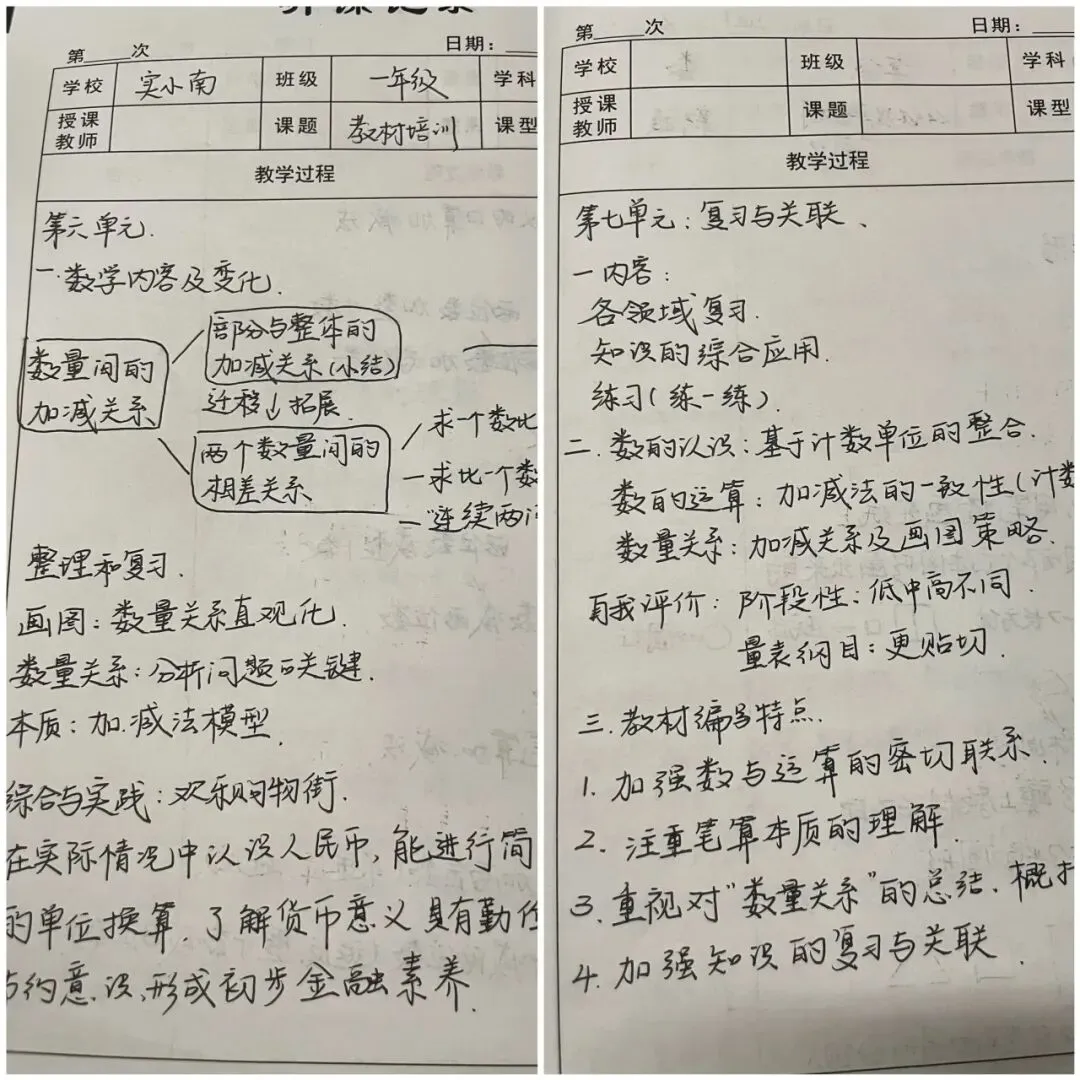 听课记录
第 次
日期：
学校 实小南 班级 一年级 学科
授课教师 课题 教材培训 课型
教学过程
第六单元.
一.数学内容及变化.
数量间的加减关系
部分与整体的加减关系(小结)
迁移↓拓展.
两个数量间的相差关系
求一个数比
一求比一个数
一"连续两问
整理和复习.
画图：数量关系直观化.
数量关系：分析问题的关键.
本质：加.减法模型.
综合与实践：欢乐购物街.
在实际情况中认识人民币,能进行简
的单位换算.了解货币意义具有勤俭
节约意识,形成初步金融素养.
第 次
日期：
学校 班级 学科
授课教师 课题 课型
教学过程
第七单元：复习与关联、
一内容：
各领域复习.
知识的综合应用.
练习(练一练).
二.数的认识：基于计数单位的整合.
数的运算：加减法的一致性(计数
数量关系：加减关系及画图策略.
自我评价：阶段性：低中高不同.
量表纲目：更贴切.
三.教材编写特点.
1.加强数与运算的密切联系.
2.注重笔算本质的理解.
3.重视对"数量关系"的总结、概括
4.加强知识的复习与关联.